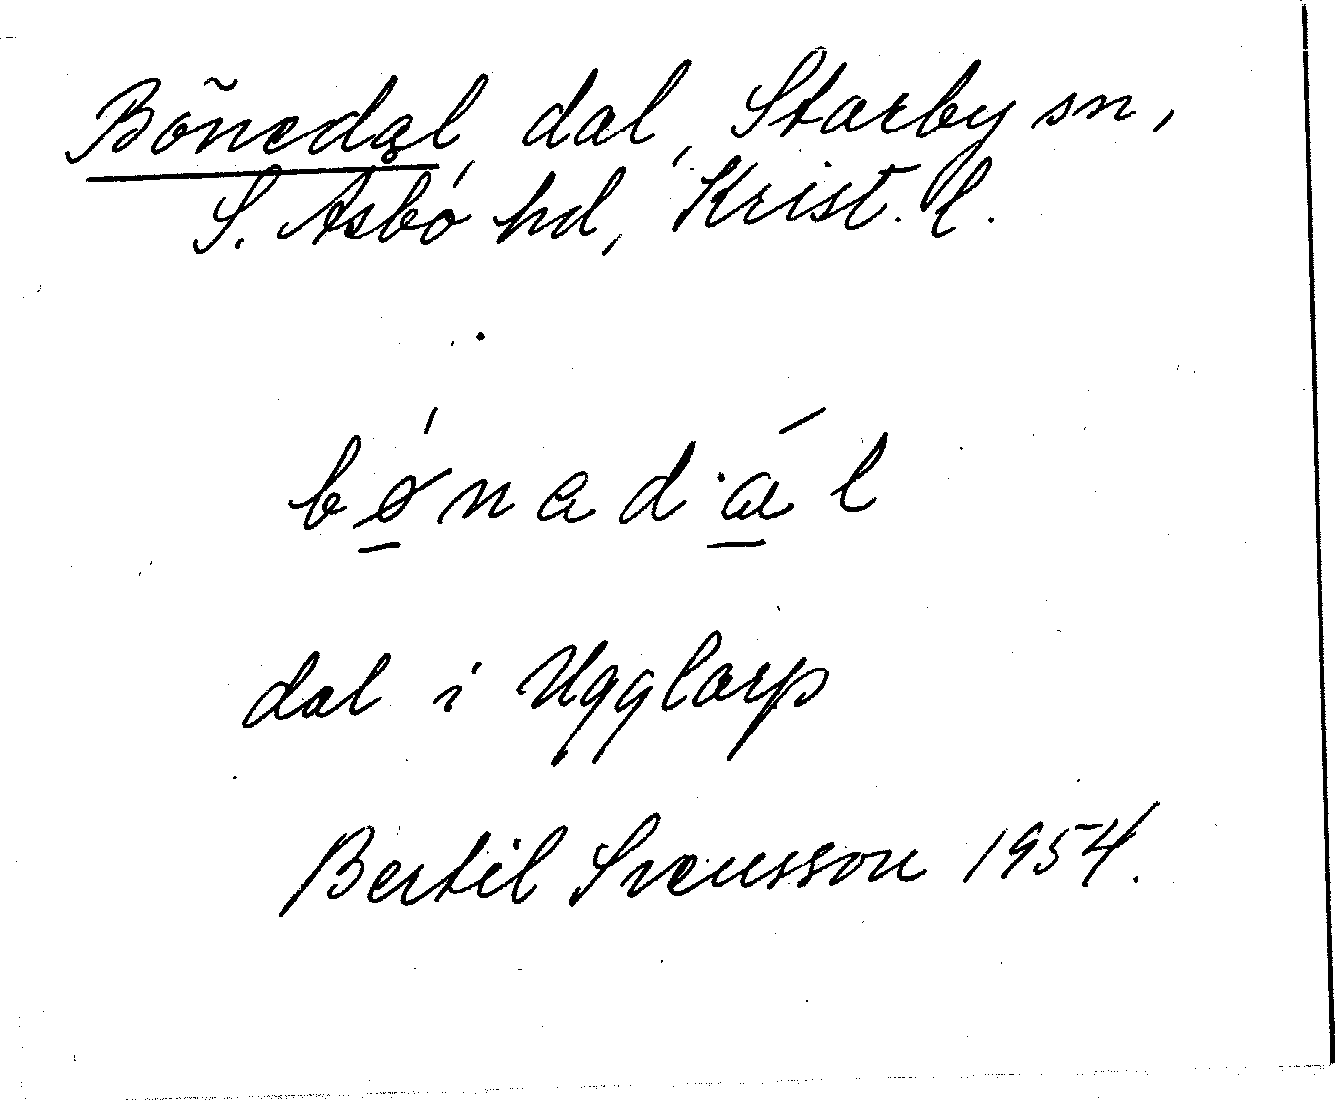 Bönedal, dal, Starby sn,
S. Åsbo hd, Krist. l.
bǿnadál
dal i Ugglarp
Bertil Svensson 1954.